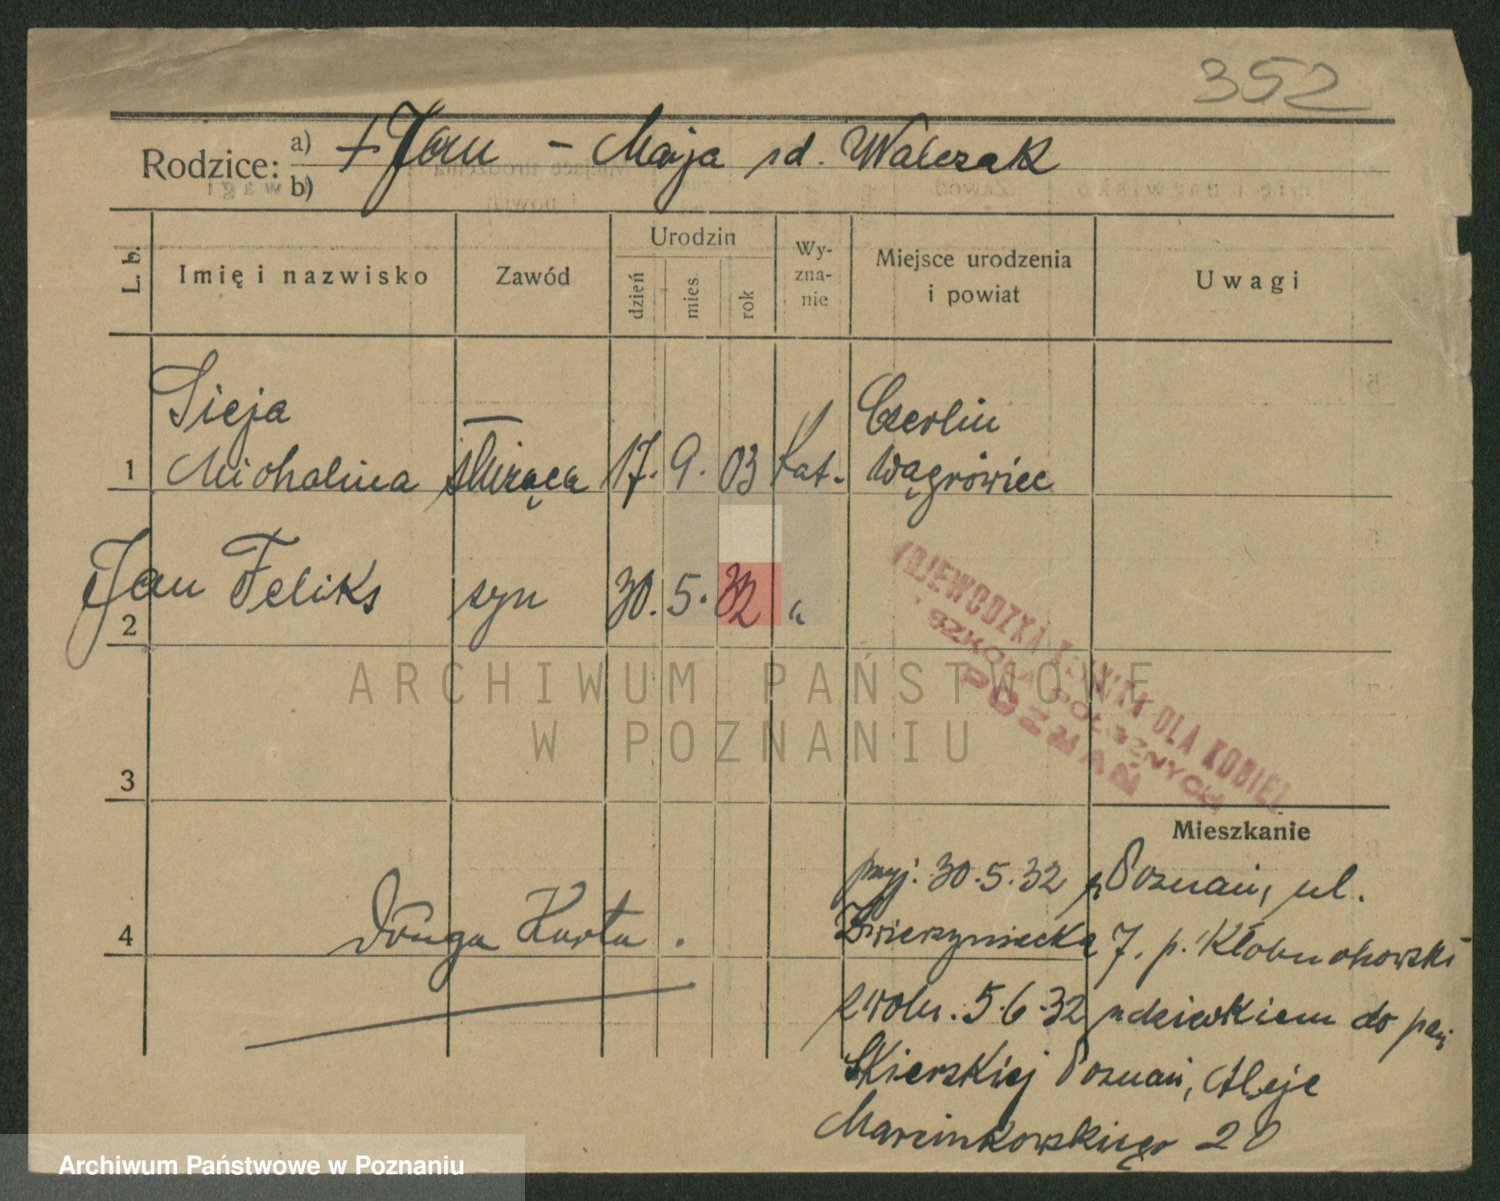 352
Rodzice: a) + Jan – Marja zd. Walczak
b)
L. b.
Imię i nazwisko
Zawód
Urodzin
dzień
mies
rok
Wy-
zna-
nie
Miejsce urodzenia
i powiat
Uwagi
Sieja
Michalina
służąca
17. 9. 03
kat.
Czerlin
Wągrówiec
1
Jan Feliks
syn
30. 5. 32
"
2
WOJEWÓDZKA KLINIKA DLA KOBIET
SZKOŁA POŁOŻNYCH
POZNAŃ
ARCHIWUM PAŃSTWOWE
W POZNANIU
3
Mieszkanie
4
Druga Karta.
przyj. 30.5.32 z Poznań, ul.
Zwierzyniecka 7. p. Kłobuchowski
zwoln. 5.6.32 z dzieckiem do pani
Skierskiej Poznań, Aleje
Marcinkowskiego 20
Archiwum Państwowe w Poznaniu